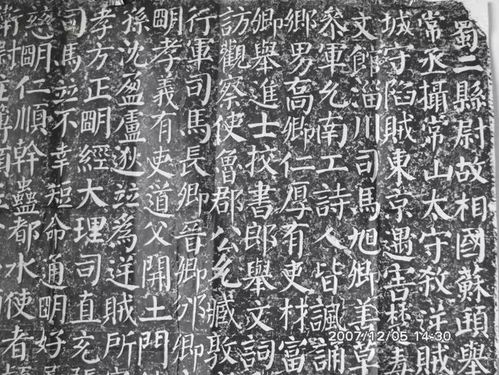 蜀二縣尉故相國蘇頲舉
常丞攝常山太守殺逆賊
城守陷賊東京遇害楚毒
文館淄川司馬旭卿善草
叅軍允南工詩人皆諷誦
鄉男喬卿仁厚有吏材富
卿舉進士挍書郎舉文詞
訪觀察使魯郡公允臧敦
行軍司馬長卿晉卿邠卿
朙孝義有吏道父開土門
孫沈盈盧逖竝為逆賊所
孝方正朙經大理司直充張
司馬竝不幸短命通朙好
慈朙仁順幹蠱都水使者
衛尉
2007/12/05 14:30